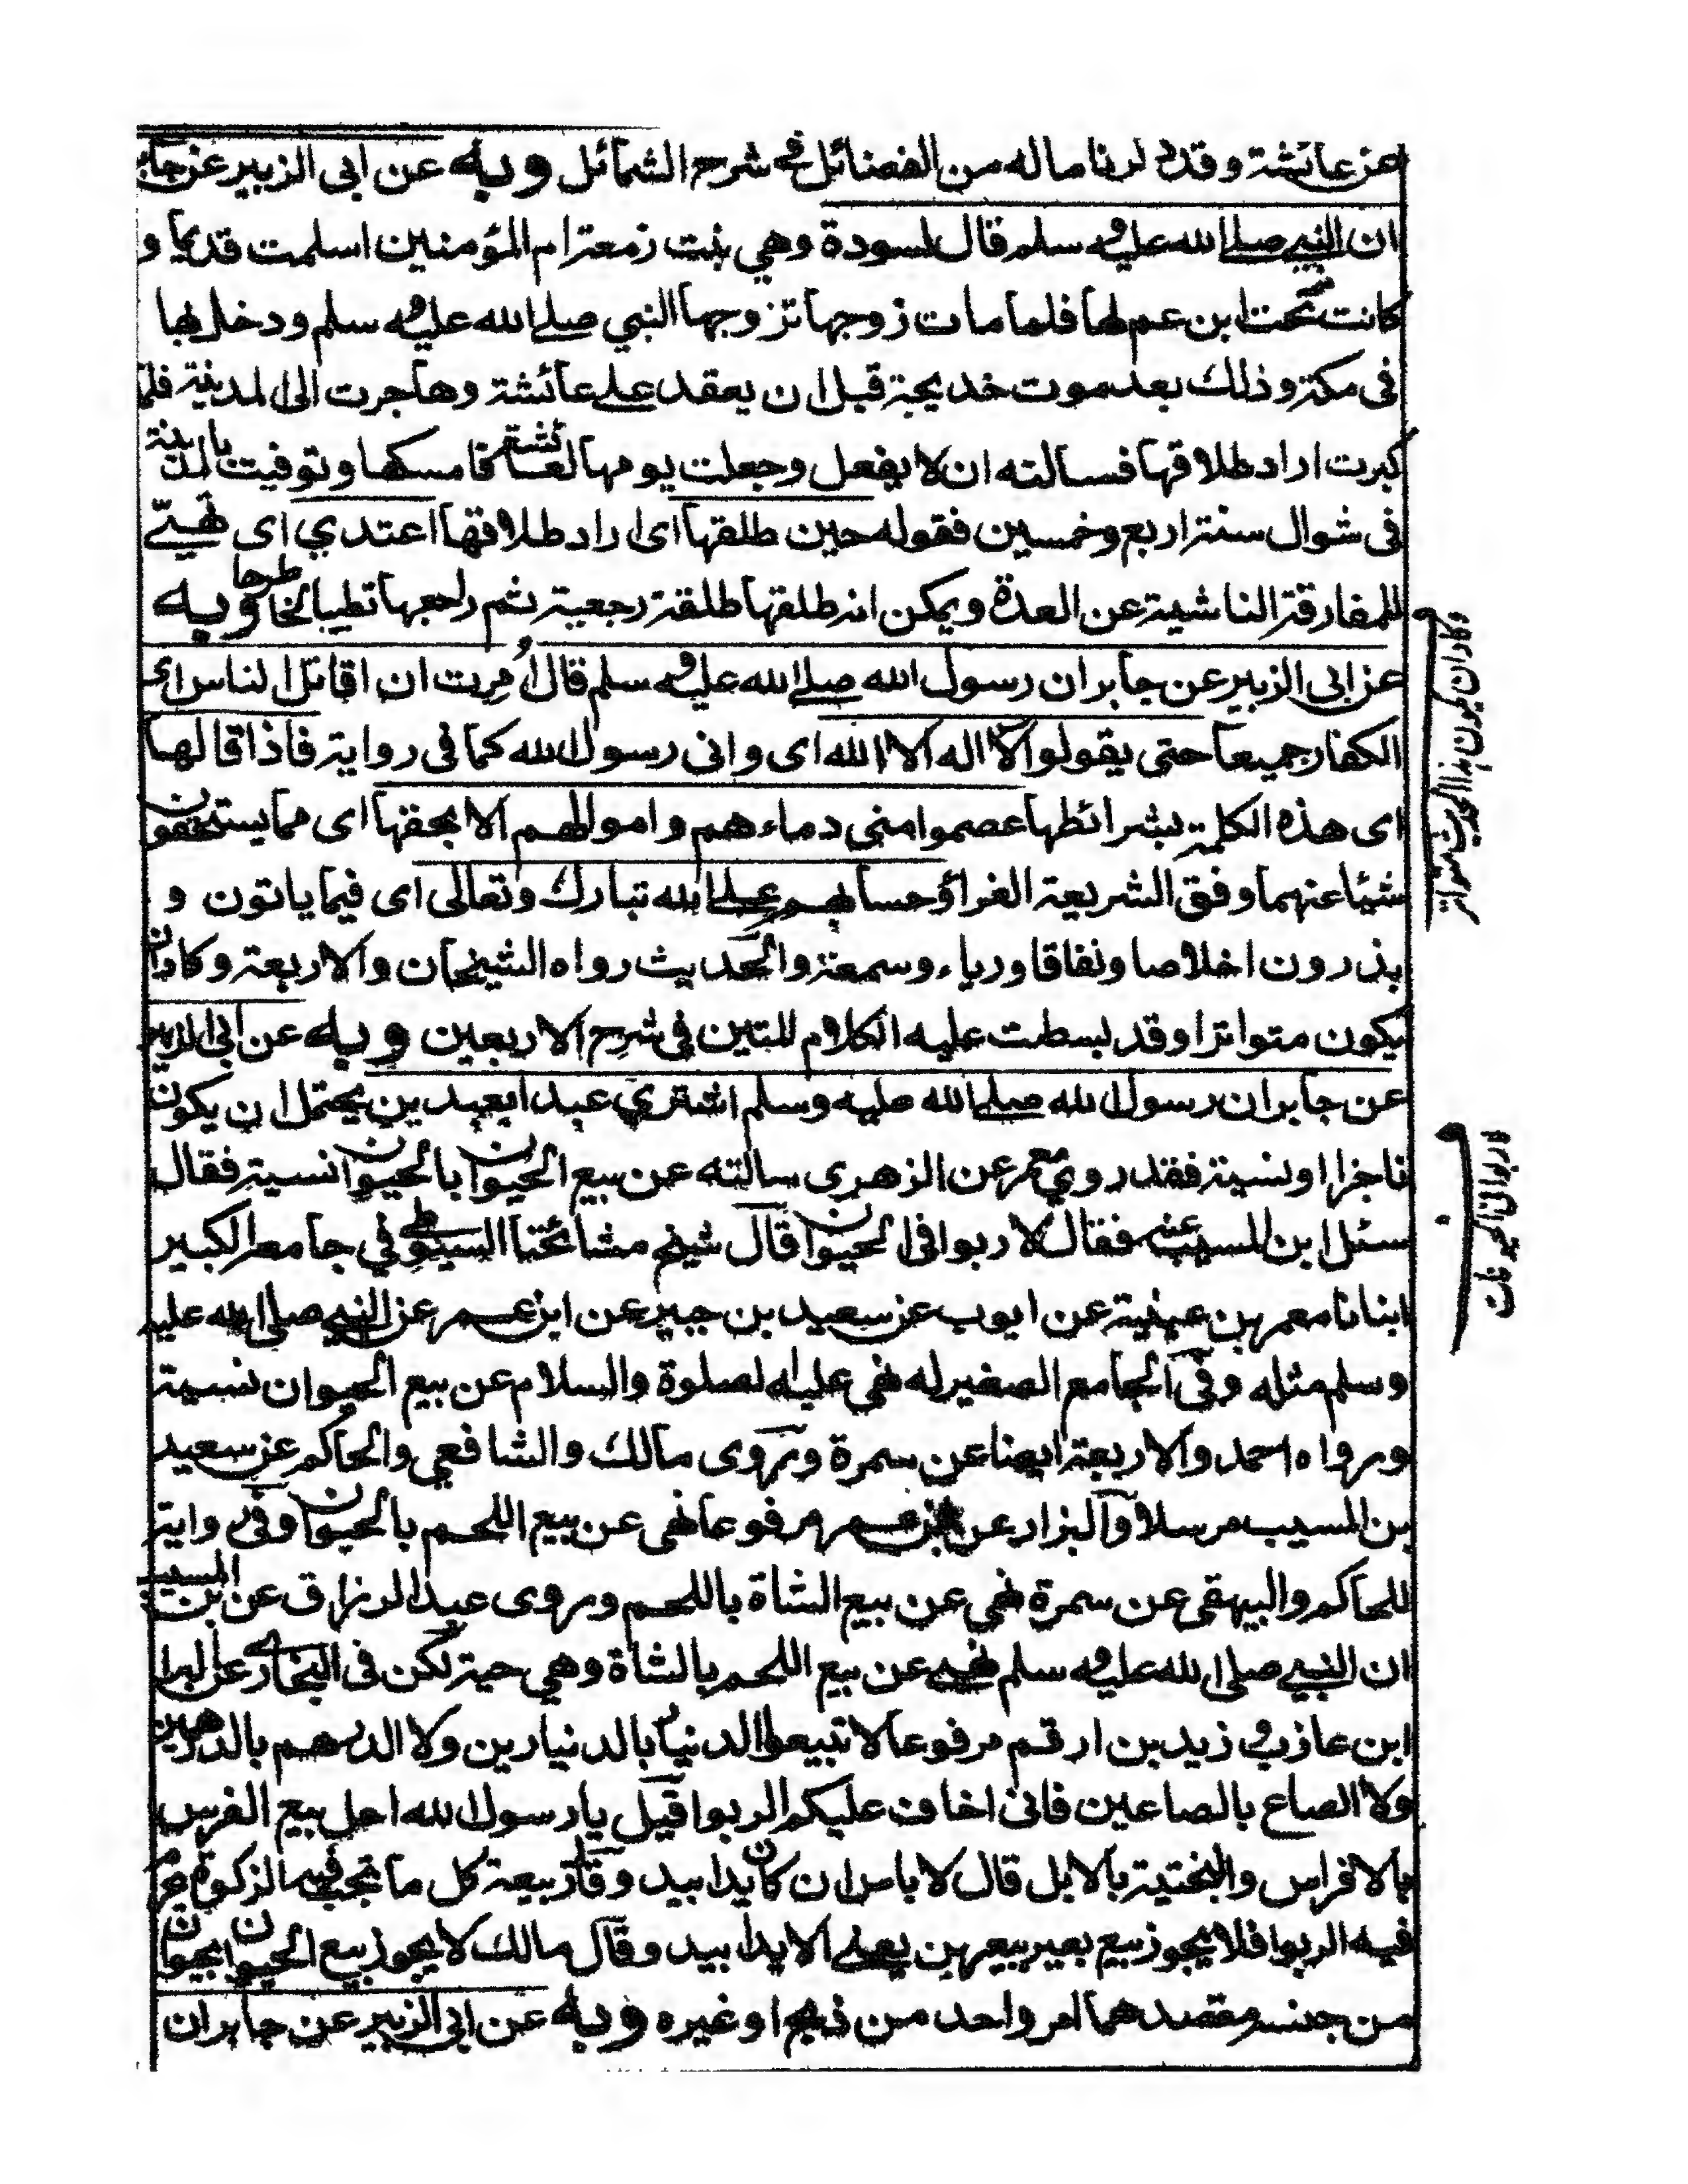 عن عائشة وقد ذكرنا ماله من الفضائل في شرح الشمائل وبه عن ابى الزبير عن جابر
ان النبي صلے الله عليه وسلم قال لسودة وهي بنت زمعة ام المؤمنين اسلمت قديما و
كانت تحت ابن عم لها فلما مات زوجها تزوجها النبي صلے الله عليه وسلم ودخل بها
فى مكة وذلك بعد موت خديجة قبل ان يعقد علے عائشة وهاجرت الى المدينة فلما
كبرت اراد طلاقها فسالته ان لا يفعل وجعلت يومها لعائشة فامسكها وتوفيت بالمدينة
فى شوال سنة اربع وخمسين فقوله حين طلقها اى اراد طلاقها اعتدي اى تهيئے
للمفارقة الناشية عن العدة ويمكن انه طلقها طلقة رجعية ثم راجعها تطيبا لخاطرها وبه
عن ابى الزبير عن جابر ان رسول الله صلے الله عليه وسلم قال اُمرت ان اقاتل الناس اى
الكفار جميعا حتى يقولوا لا اله الا الله اى وانى رسول الله كما فى رواية فاذا قالها
اى هذه الكلمة بشرائطها عصموا منى دماءهم واموالهم الا بحقها اى مما يستحقون
شيئا عنهما وفق الشريعة الغراؤ حسابهم علے الله تبارك وتعالى اى فيما ياتون و
يذرون اخلاصا ونفاقا ورياء وسمعة والحديث رواه الشيخان والاربعة وكاد ان
يكون متواترا وقد بسطت عليه الكلام للتين فى شرح الاربعين وبه عن ابى الزبير
عن جابر ان رسول الله صلے الله عليه وسلم اشتري عبدا بعبدين يحتمل ان يكون
ناجزا او نسية فقد روي معمر عن الزهرى سالته عن بيع الحيوان بالحيوان نسية فقال
سئل ابن المسيب عنه فقال لا ربوا فى الحيوان قال شيخ مشائخنا السيوطي في جامعه الكبير
انبانا معمر بن عيينة عن ايوب عن سعيد بن جبير عن ابن عمر عن النبي صلى الله عليه
وسلم مثله وفى الجامع الصغير له نهى عليه الصلوة والسلام عن بيع الحيوان نسية
ورواه احمد والاربعة ايضا عن سمرة وروى مالك والشافعي والحاكم عن سعيد
بن المسيب مرسلا والبزار عن ابن عمر مرفوعا نهى عن بيع اللحم بالحيوان وفى رواية
للحاكم والبيهقى عن سمرة نهي عن بيع الشاة باللحم وروى عبد الرزاق عن ابن المسيب
ان النبي صلى الله عليه وسلم نهى عن بيع اللحم بالشاة وهي حية لكن فى البخارے عن البراء
ابن عازب وزيد بن ارقم مرفوعا لا تبيعوا الدينار بالدينارين ولا الدرهم بالدرهمين
ولا الصاع بالصاعين فانى اخاف عليكم الربوا قيل يا رسول الله احل بيع الفرس
بالافراس والبختية بالابل قال لا باس ان كان يدا بيد وقال ربيعة كل ما تجب فيه الزكوة
فيه الربوا فلا يجوز بيع بعير ببعيرين يعنے الا يدا بيد وقال مالك لا يجوز بيع الحيوان بحيوان
من جنسه مقصدهما امر واحد من ذبح او غيره وبه عن ابى الزبير عن جابر ان
وكاد ان يكون هذا الحديث متواتر
لا ربوا فى الحيوانات